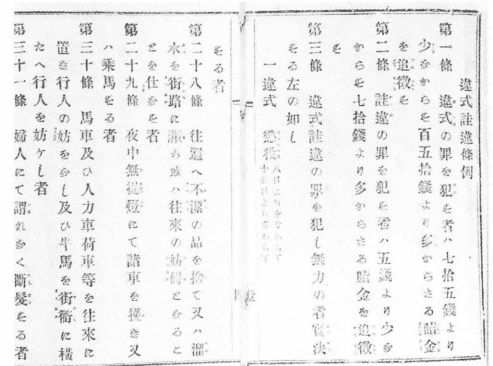 違式詿違條例
第一條　違式の罪を犯を者ハ七拾五錢より
少をからを百五拾錢より多からさる贖金
を追徵を
第二條　詿違の罪を犯を者ハ五錢より少を
からを七拾錢より多からさる贖金を追徵
を
第三條　違式詿違の罪を犯し無力の者實決
をる左の如し
一違式
をる者
第二十八條　往還へ不潔の品を捨て又ハ溜
水を街路に漲ち或ハ往來の妨碍とをるこ
とを仕を者
第二十九條　夜中無提燈にて諸車を挽き又
ハ乗馬をる者
第三十條　馬車及ひ人力車荷車等を往來に
置き行人の妨をかし及ひ牛馬を街衢に橫
たへ行人を妨ケし者
第三十一條　婦人にて謂れをく斷髮をる者